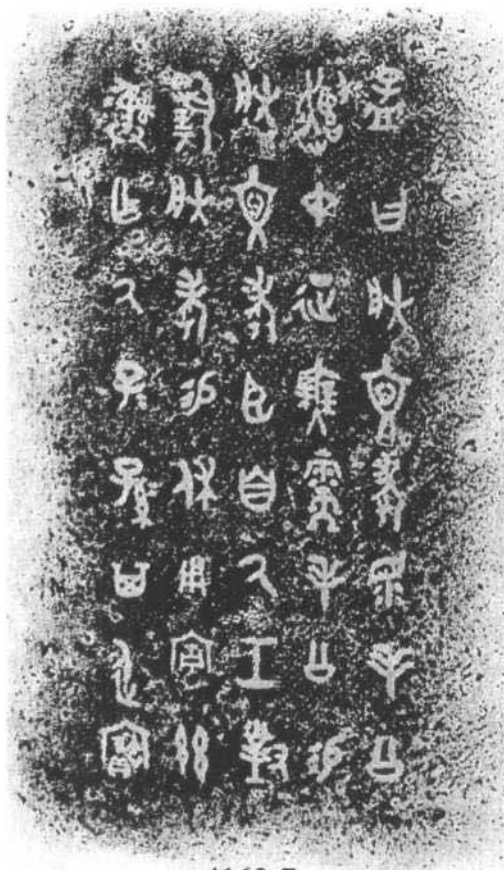 孟曰朕文考眔毛公
趞中征無需毛公易
朕文考臣自氒工對
揚朕考易休用宣茲
彝乍氒子=孫=其永寶